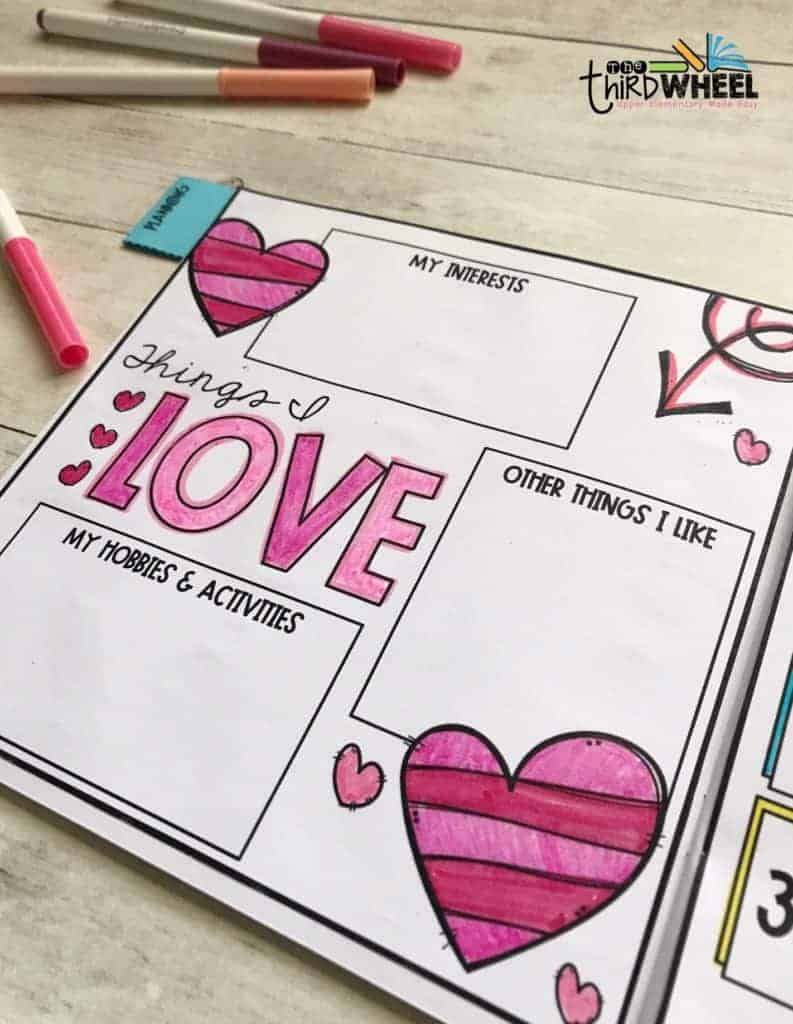 The
Third WHEEL
Upper Elementary Made Easy
PLANNING
MY INTERESTS
Things I
LOVE
OTHER THINGS I LIKE
MY HOBBIES & ACTIVITIES
3